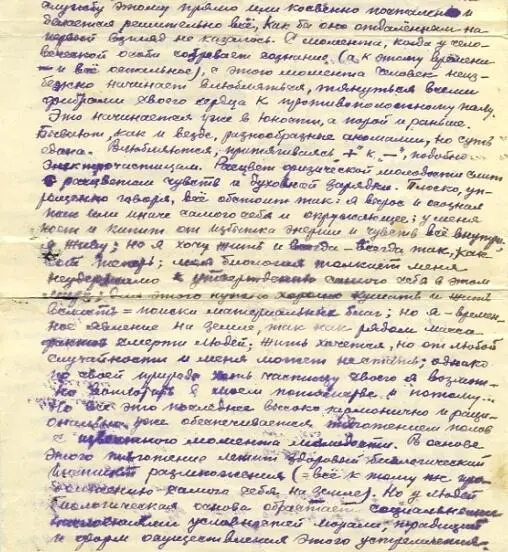 службу этому прямо или косвенно поставлено и
делается решительно всё, как бы оно отдалённым на
первый взгляд не казалось. С момента, когда у чело-
веческой особи созревает сознание (а к этому времени
и всё остальное), с этого момента человек неиз-
бежно начинает влюбляться, тянуться всеми
фибрами своего сердца к противоположному полу.
Это начинается уже в юности, а порой и раньше.
Бывают, как и везде, разнообразные аномалии, но суть
одна. Влюбляются, притягиваясь „+" к „–", подобно
электрочастицам. Расцвет физической молодости слит
с расцветом чувств и духовной зарядки. Плоско, уп-
рощенно говоря, всё обстоит так: я вырос и осознал
так или иначе самого себя и окружающее; у меня
и кипит от избытка энергии и чувств всё внутри.
Я живу; но я хочу жить и всегда – всегда так, как
теперь; моя биология толкает меня
неудержимо к утверждению самого себя в этом
для этого нужно хорошо кушать и жить
= поиски материальных благ; но я – времен-
ное явление на земле, так как рядом масса
фактов смерти людей. Жить хочется, но от любой
случайности и меня может не стать; однако
по своей природе хоть частицу своего я
воплотить в моем потомстве, а потому...
Но всё это последнее высоко гармонично и раци-
онально уже обеспечивается тяготением полов
с известного момента молодости. В основе
этого тяготение лежит здоровый биологический
инстинкт размножения (= всё к тому же про-
самого себя на земле). Но у людей
биологическая основа обрастает социальными
условностей морали, традиций
и форм осуществления этого устремления.